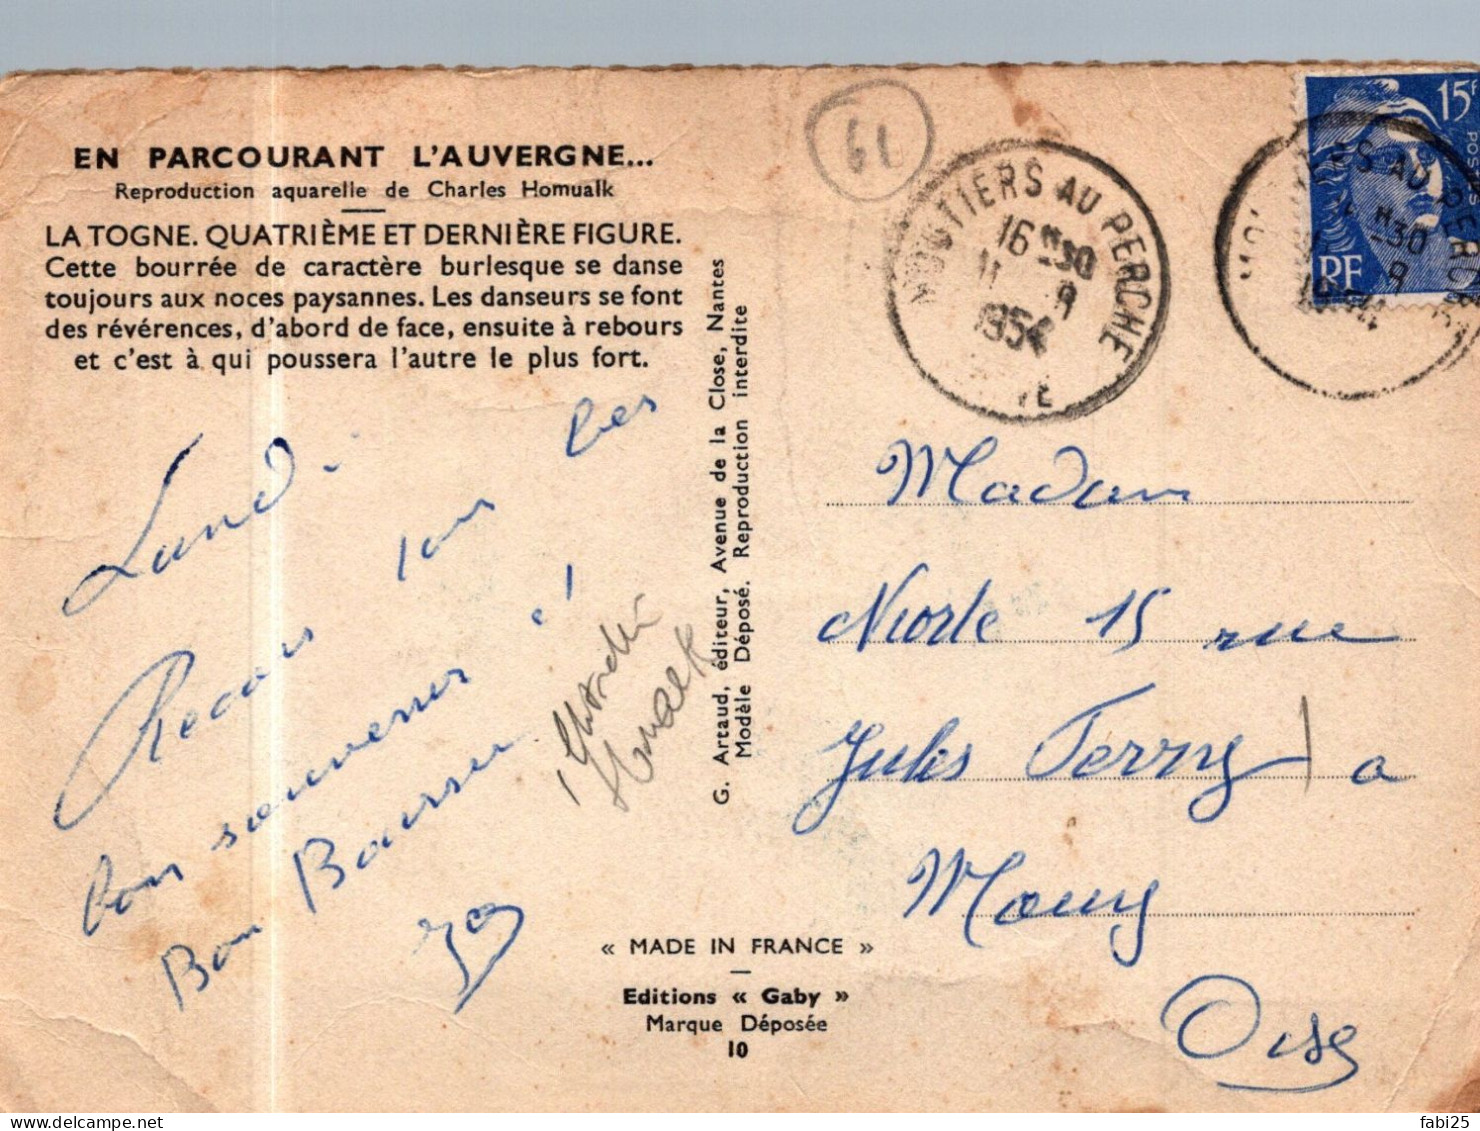 EN PARCOURANT L'AUVERGNE...
Reproduction aquarelle de Charles Homualk
LA TOGNE. QUATRIÈME ET DERNIÈRE FIGURE.
Cette bourrée de caractère burlesque se danse
toujours aux noces paysannes. Les danseurs se font
des révérences, d'abord de face, ensuite à rebours
et c'est à qui poussera l'autre le plus fort.
Lundi
les
bon
Bon
G. Artaud, éditeur, Avenue de la Close, Nantes
Modèle Déposé. Reproduction interdite
« MADE IN FRANCE »
Editions « Gaby »
Marque Déposée
10
61
MOUTIERS AU PERCHE
16 H30
11 - 8
1954
15F
POSTES
RF
Madam
Niorte 15 rue
Jules Ferry a
Mouy
Oise
fabi25